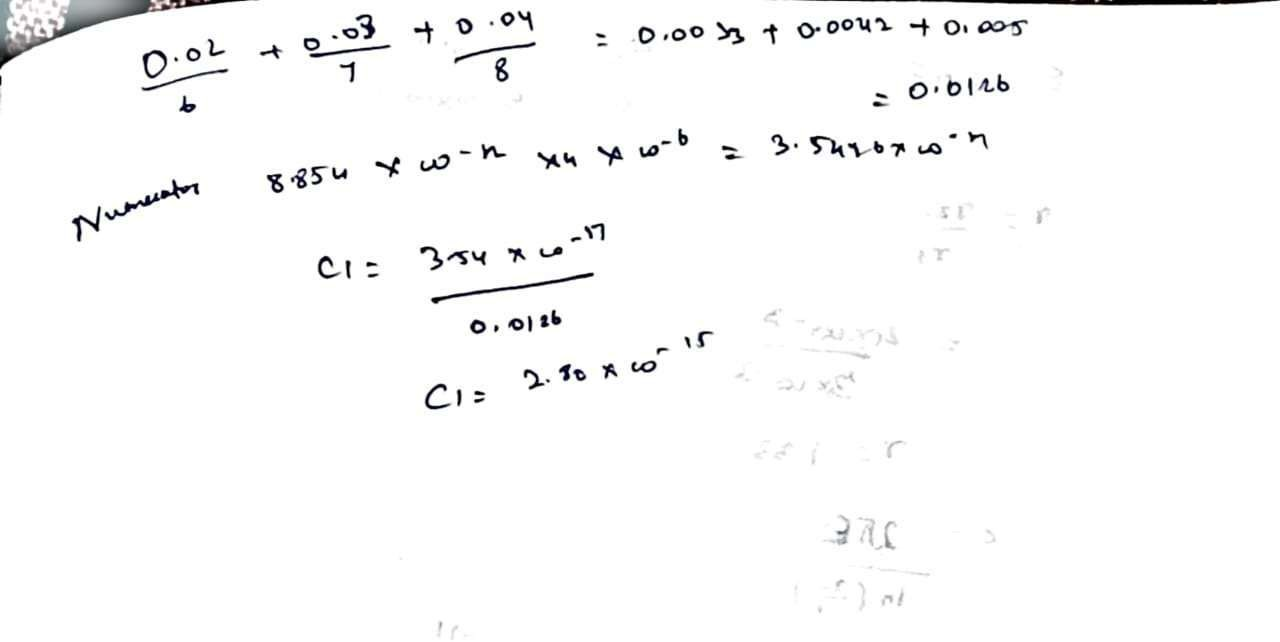 0.02/6 + 0.03/7 + 0.04/8 = 0.0033 + 0.0042 + 0.005
= 0.0126
Numerator 8.854 × 10-12 × 4 × 10-6 = 3.5416 × 10-17
C1 = 3.54 × 10-17 / 0.0126
C1 = 2.80 × 10-15